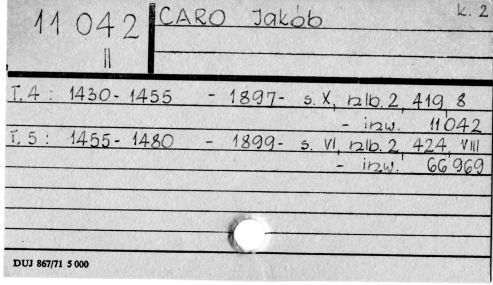 11 042 CARO Jakób k. 2
II
T. 4 : 1430 - 1455 - 1897 - s. X, nlb. 2, 419, 8
- inw. 11042
T. 5 : 1455 - 1480 - 1899 - s. VI, nlb. 2, 424, VIII
- inw. 66 969
DUJ 867/71 5 000